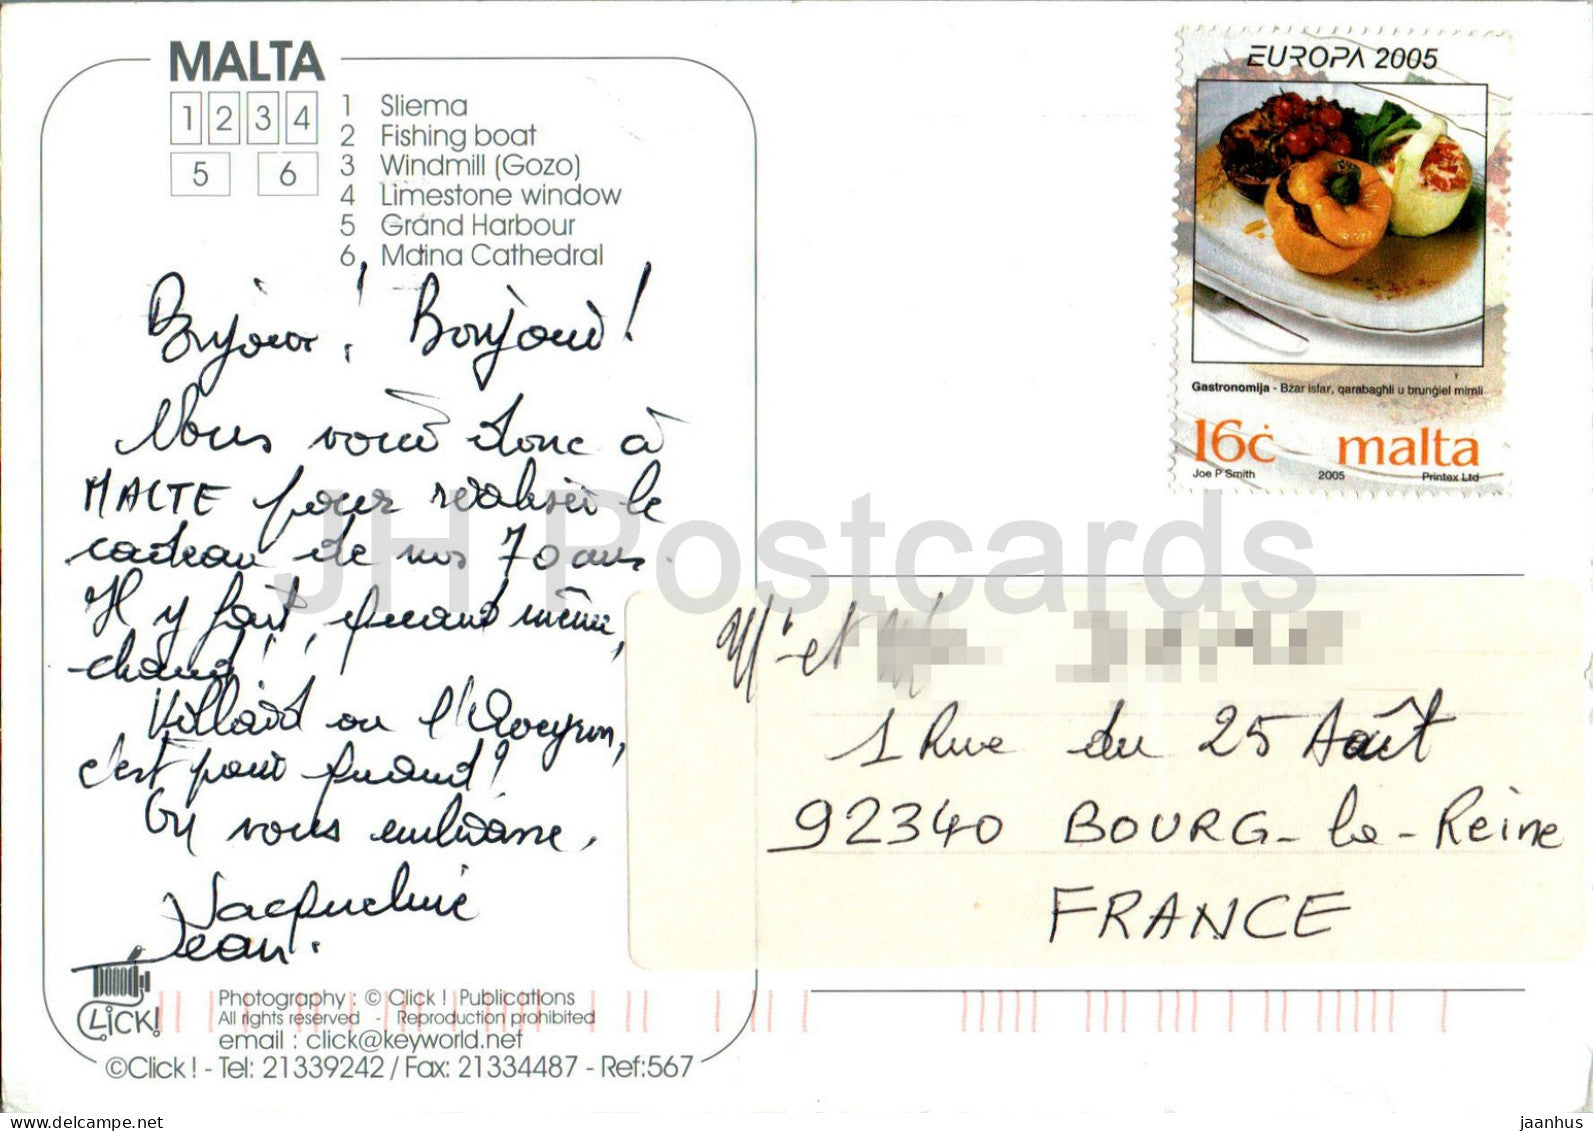 MALTA
1 2 3 4
5 6
1 Sliema
2 Fishing boat
3 Windmill (Gozo)
4 Limestone window
5 Grand Harbour
6 Mdina Cathedral
Bonjour! Bonjour!
Nous voici donc à
MALTE pour réaliser le
cadeau de nos 70 ans.
Il y fait, quand même,
chaud!
Villard ou l'Aveyron,
c'est pour quand?
On vous embrasse,
Jacqueline
Jean.
CLiCK!
Photography : © Click ! Publications
All rights reserved - Reproduction prohibited
email : click@keyworld.net
©Click ! - Tel: 21339242 / Fax: 21334487 - Ref:567
EUROPA 2005
Gastronomija - Bżar isfar, qarabagħli u brunġiel mimli
16ċ malta
Joe P Smith 2005 Printex Ltd
JH Postcards
et
1 Rue du 25 Août
92340 BOURG-la-Reine
FRANCE
jaanhus